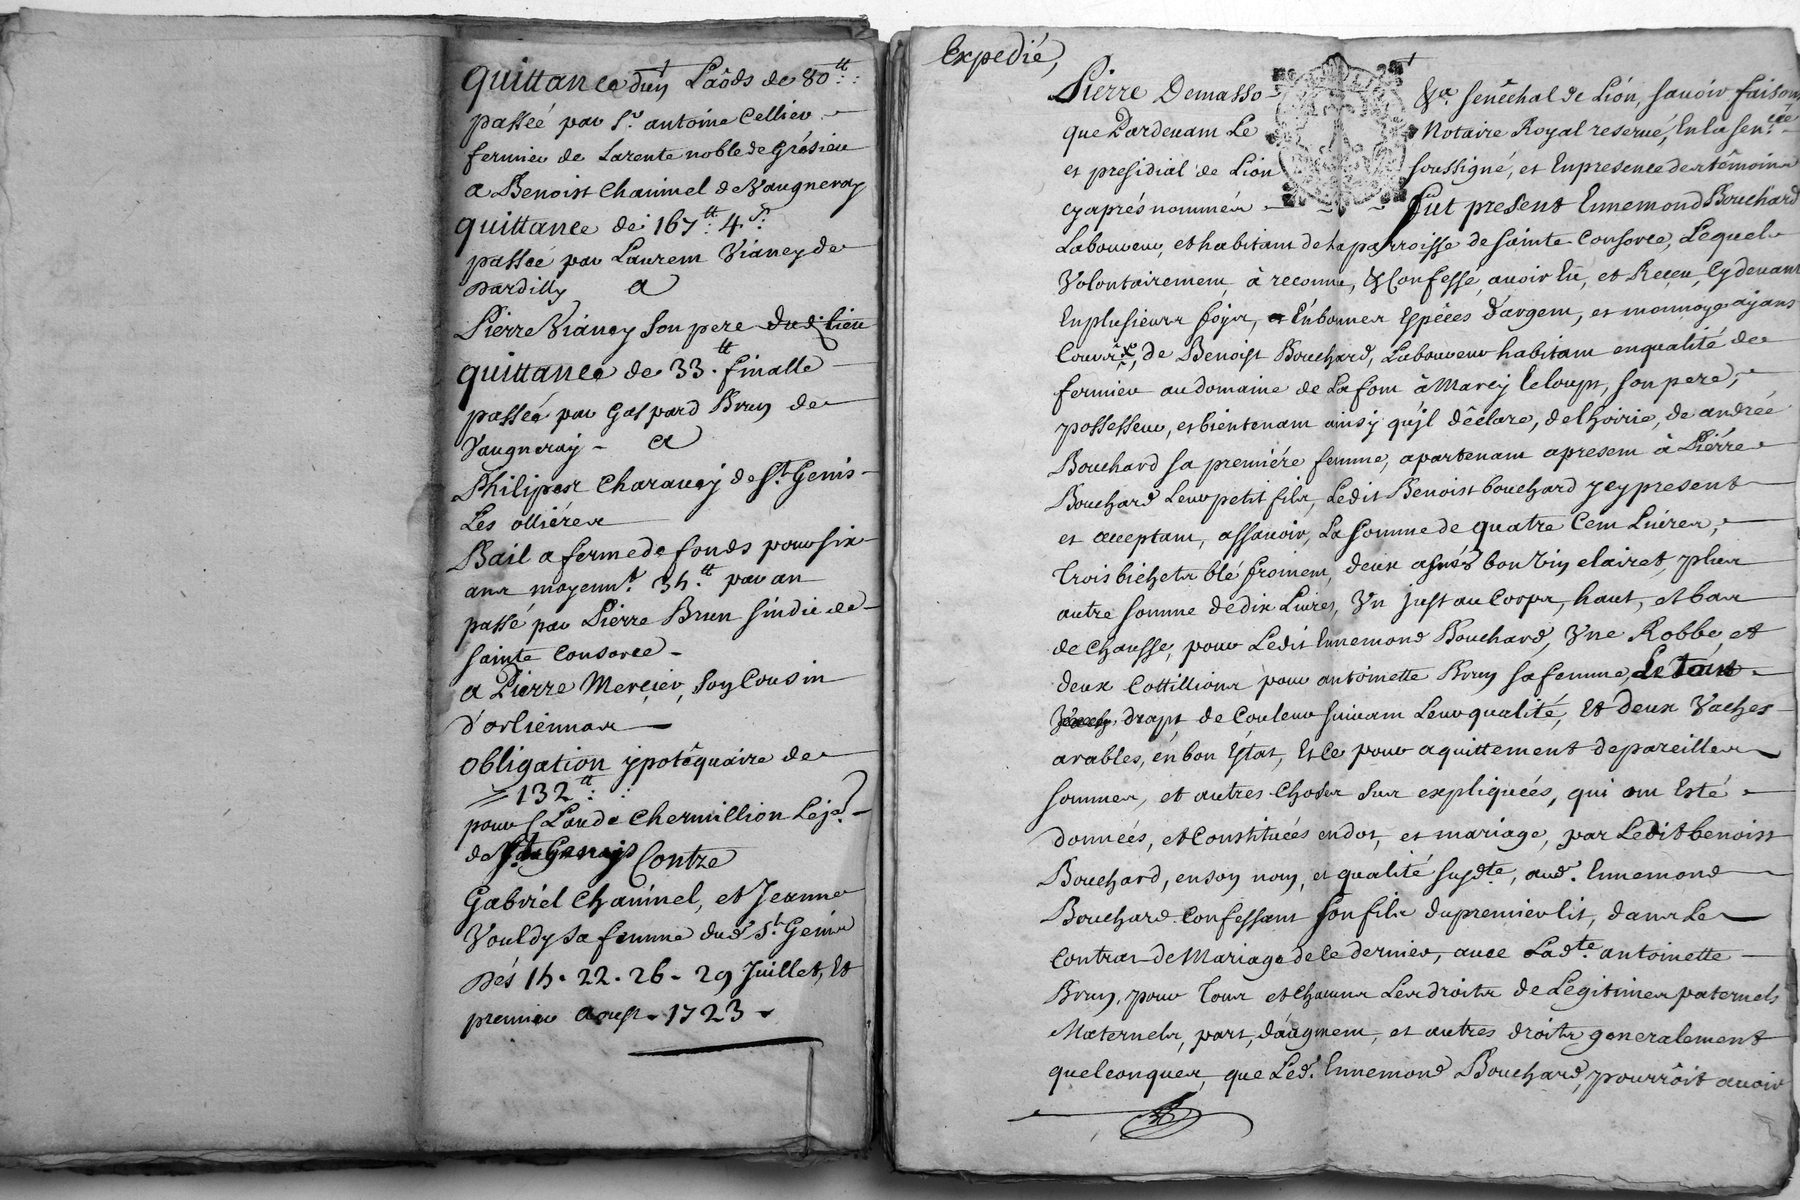 quittance d'un Laôds de 80tt
passée par Sr. antoine Cellier
fermier de Larente noble de Grésieu
a Benoist Chauinel de Vaugneray
quittance de 167tt: 4s.
passée par Laurent Vianey de
dardilly a
Pierre Vianey Son pere dud: lieu
quittance de 33tt. finalle
passée par Gaspard Brun de
Vaugneray - a
Philipes Charauay de St. Genis
Les ollières
Bail a ferme de fonds pour six
ans moyennt. 35tt. par an
passé par Pierre Brun sindic de
sainte Consorce -
a Pierre Mercier, Son Cousin
d'orliennas
obligation ypotêquaire de
132tt:
pour Claude Chermillion Leje.
de Contre
Gabriel Chauinel, et Jeanne
Vouldy sa femme dud. St. Genis
Dés 15. 22. 26. 29 Juillet, Et
premier aoust. 1723
Expedié,
Pierre Demasso &a. senêchal de Lion, sauoir faisons
que Pardeuant Le Notaire Royal reserué, En la senée.
et presidial de Lion soussigné, et En presence des têmoins
cy aprés nommés Fut present Ennemond Bouchard
Laboureur, et habitant de la parroisse de sainte Consorce, Lequel
Volontairement, à reconnu, & Confessé, auoir Eu, et Reçeu, Cy deuant
En plusieurs fois, et En bonnes Espèces d'argent, et monnoye ayant
Cours, de Benoist Bouchard, Laboureur habitant en qualité de
fermier au domaine de Lafont à Marcy le loup, son pere,
possesseur, et bientenant ainsy qu'jl dêclare, de l'hoirie, de andrée
Bouchard sa premiére femme, apartenant apresent à Pierre
Bouchard Leur petit fils, Ledit Benoist bouchard jcy present
et acceptant, assauoir, La somme de quatre Cent Liures,
trois bichets blé froment, deux asnés bon Vin clairet, plus
autre somme de dix Liures, Vn just au Corps, haut, et bas
de Chausse, pour Ledit Ennemond Bouchard, Vne Robbe, et
deux Cottillions pour antoinette Brun sa femme, Le tout
drapt de Couleur suiuant Leur qualité, Et deux Vaches
arables, en bon Estat, Et ce pour aquittement de pareilles
sommes, et autres choses sus expliquées, qui ont Esté
données, et Constituées en dot, et mariage, par Ledit benoist
Bouchard, en son nom, et qualité susdte, aud. Ennemond
Bouchard Confessant son fils du premier lit, dans Le
Contrat de Mariage de ce dernier, auec Ladte. antoinette
Brun, pour tous et chacuns Les droits de Legitimes paternels
Maternels, part, d'augment, et autres droits generalement
quelconques, que Led. Ennemond Bouchard, pourrôit auoir